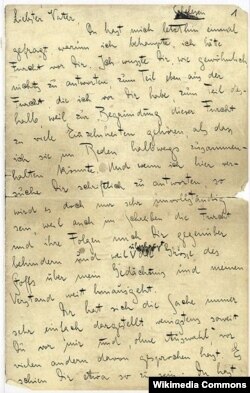 Schelesen 1
Liebster Vater
Du hast mich letzthin einmal
gefragt warum ich behaupte ich hätte
Furcht vor Dir. Ich wusste Dir, wie gewöhnlich
nichts zu antworten zum Teil eben aus der
Furcht die ich vor Dir habe zum Teil des-
halb weil zur Begründung dieser Furcht
zu viele Einzelheiten gehören als dass
ich sie im Reden halbwegs zusammen-
halten könnte. Und wenn ich hier ver-
suche Dir schriftlich zu antworten so
wird es doch nur sehr unvollständig
sein, weil auch im Schreiben die Furcht
und ihre Folgen mich Dir gegenüber
behindern und weil die Grösse des
Stoffs über mein Gedächtnis und meinen
Verstand weit hinausgeht.
Dir hat sich die Sache immer
sehr einfach dargestellt wenigstens soweit
Du vor mir und, ohne Auswahl, vor
vielen andern davon gesprochen hast. Es
schien Dir etwa so zu sein: Du hast
Wikimedia Commons